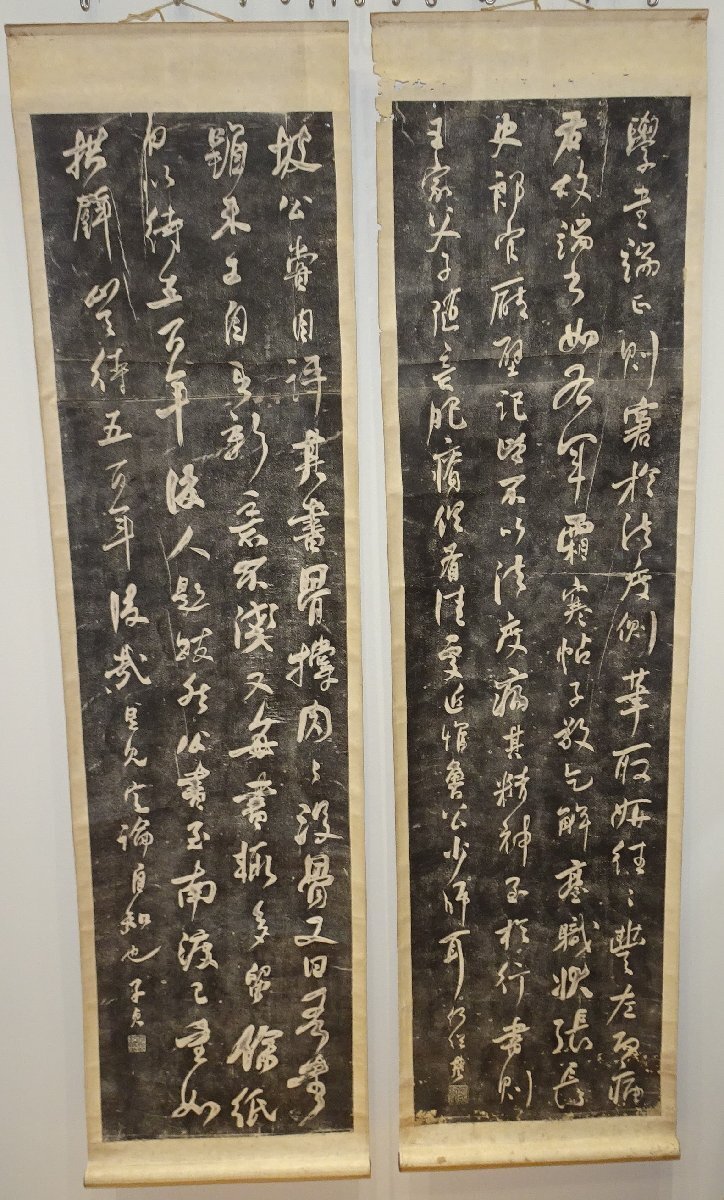 學書端正則窘於法度側筆取妍往往豐左而病
右故端書如右軍霜寒帖子敬乞解臺職狀張長
史郎官廳壁記皆不以法度病其精神至於行書則
王家父子隨意肥瘠但有佳處近惟魯公少師耳 何紹基
坡公嘗自評其書骨撐肉肉沒骨又曰吾書
雖未工自出新意不踐又每書輒多留餘紙
曰以待五百年後人題跋然公書至南渡已重如
拱璧豈待五百年後哉 見 論自知也 子貞